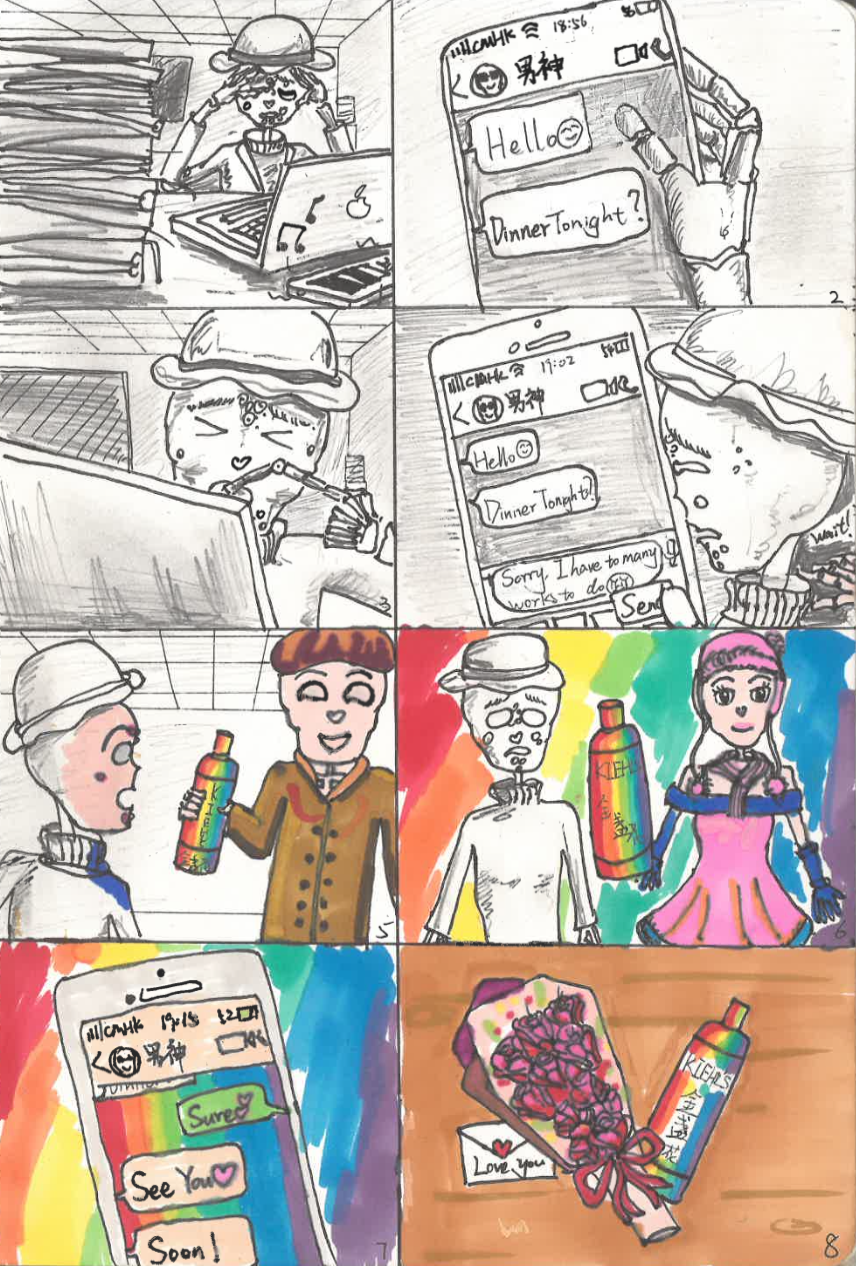 CMHK 18:56
男神
Hello
Dinner Tonight?
2
3
CMHK 19:02
男神
Hello
Dinner Tonight?
Sorry, I have to many
works to do
Send
wait!
KIEHL'S
5
KIEHL'S
金盏花
6
CMHK 19:15 52
男神
Sure
See You
Soon!
7
KIEHL'S
金盏花
Love you
8